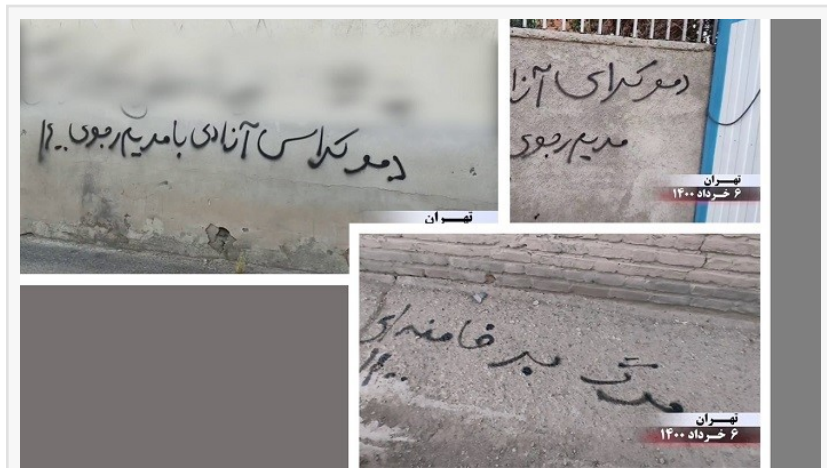 دموکراسی آزادی با مریم رجوی
تهـــران
دموکراسی آزا
مریم رجوی
تهـــران
۶ خــرداد ۱۴۰۰
مرگ بر خامنه‌ای
تهـــران
۶ خــرداد ۱۴۰۰